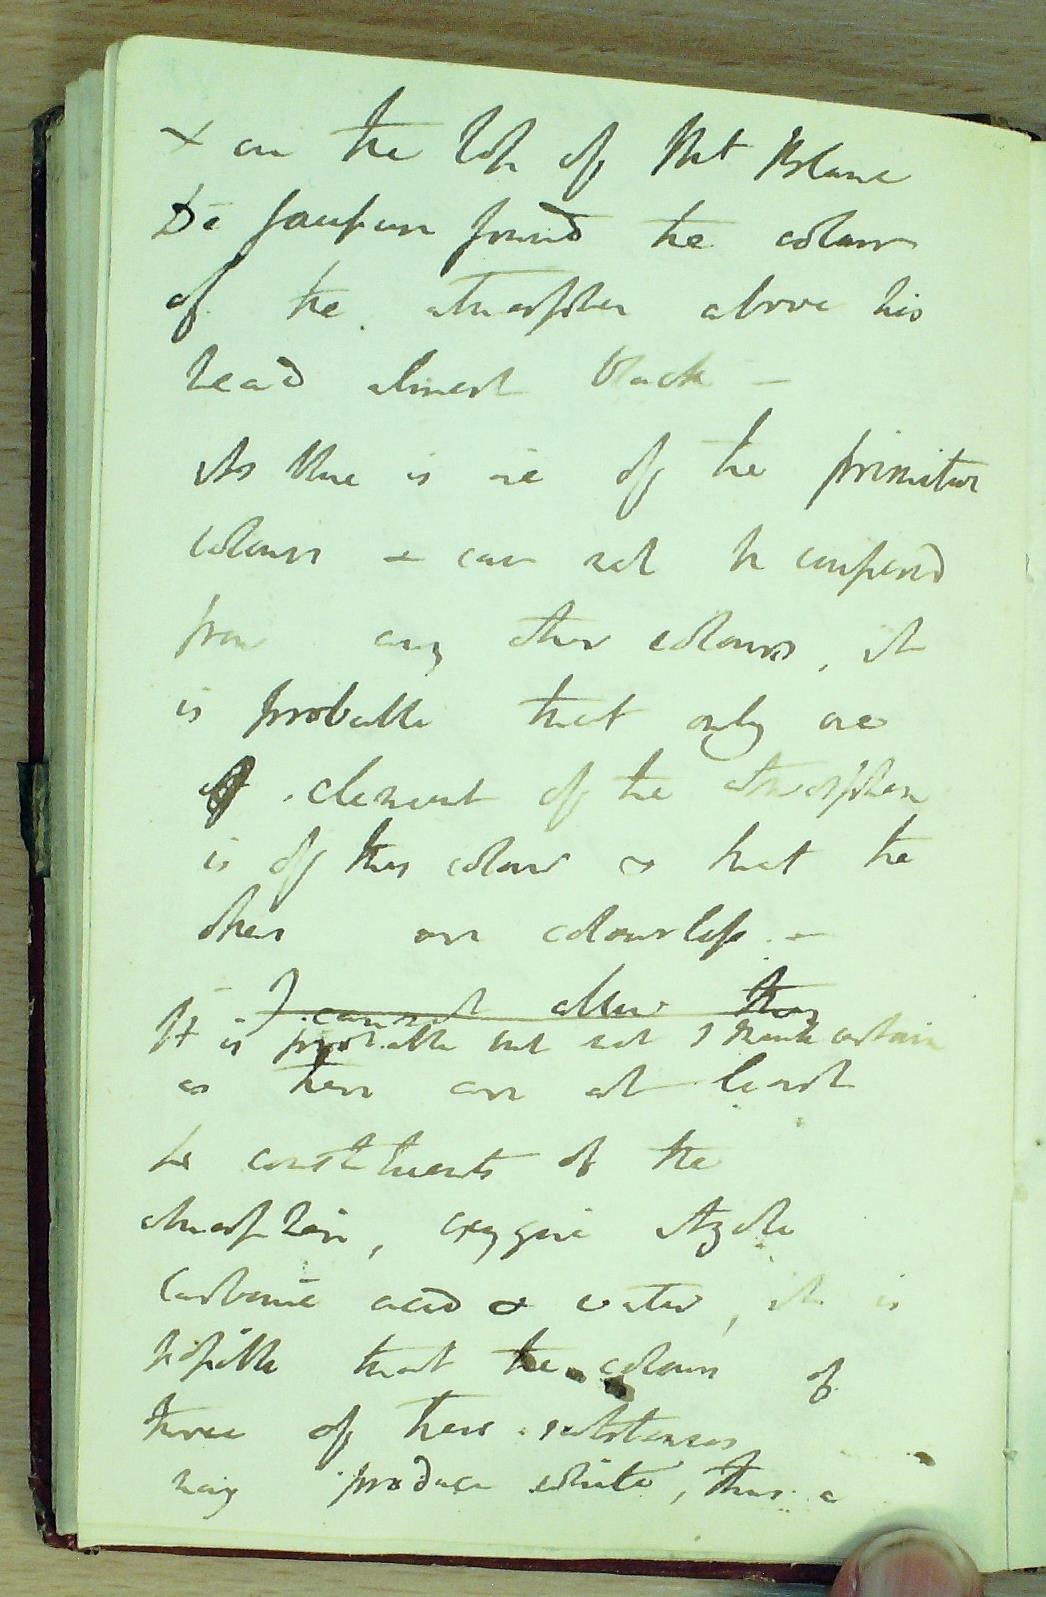 x on the top of Mt Blanc
De Saussure found the colour
of the atmosphere above his
head almost black -
As blue is one of the primitive
colours & can not be composed
from any other colours, it
is probable that only one
element of the atmosphere
is of this colour & that the
others are colourless. -
I cannot allow this
It is probable but not I think certain
as there are at least
constituents of the
atmosphere, oxygene Azote
Carbonic acid & water, it is
possible that the colours of
three of these substances
may produce white, thus a